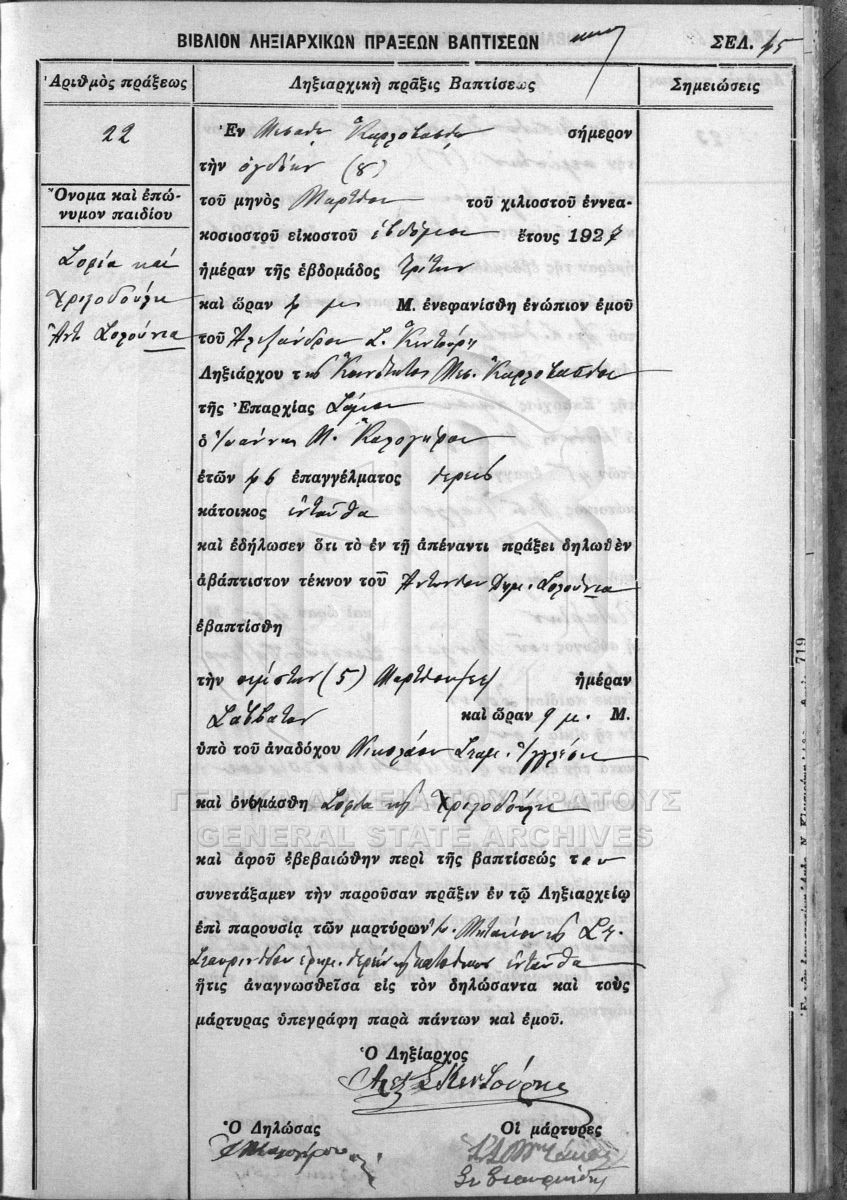 ΒΙΒΛΙΟΝ ΛΗΞΙΑΡΧΙΚΩΝ ΠΡΑΞΕΩΝ ΒΑΠΤΙΣΕΩΝ ΣΕΛ.
Ἀριθμὸς πράξεως Ληξιαρχικὴ πρᾶξις Βαπτίσεως Σημειώσεις
22
Ἐν Μεσαίῳ Καρλοβασίῳ σήμερον
τὴν ὀγδόην (8)
Ὄνομα καὶ ἐπώ-
νυμον παιδίου
τοῦ μηνὸς Μαρτίου τοῦ χιλιοστοῦ ἐννεα-
κοσιοστοῦ εἰκοστοῦ ἑβδόμου ἔτους 1927
Σοφία καὶ
ἡμέραν τῆς ἑβδομάδος Τρίτην
καὶ ὥραν μ Μ. ἐνεφανίσθη ἐνώπιον ἐμοῦ
Ἀντ
τοῦ Ἀλεξάνδρου Σ. Κεντούρη
Ληξιάρχου τῆς Κοινότητος Μεσ. Καρλοβασίου
τῆς Ἐπαρχίας Σάμου
ὁ Ἰωάννης Μ. Καλογήρου
ἐτῶν ἐπαγγέλματος ἱερεὺς
κάτοικος ἐνταῦθα
καὶ ἐδήλωσεν ὅτι τὸ ἐν τῇ ἀπέναντι πράξει δηλωθὲν
ἀβάπτιστον τέκνον τοῦ Ἀντωνίου Δημ.
ἐβαπτίσθη
τὴν πέμπτην (5) Μαρτίου ἡμέραν
Σάββατον καὶ ὥραν 9 μ. Μ.
ὑπὸ τοῦ ἀναδόχου Νικολάου Σταμ.
καὶ ὀνομάσθη Σοφία
ΓΕΝΙΚΑ ΑΡΧΕΙΑ ΤΟΥ ΚΡΑΤΟΥΣ
GENERAL STATE ARCHIVES
καὶ ἀφοῦ ἐβεβαιώθην περὶ τῆς βαπτίσεώς του
συνετάξαμεν τὴν παροῦσαν πρᾶξιν ἐν τῷ Ληξιαρχείῳ
ἐπὶ παρουσίᾳ τῶν μαρτύρων
Σταυρινίδου ἐνταῦθα
ἥτις ἀναγνωσθεῖσα εἰς τὸν δηλώσαντα καὶ τοὺς
μάρτυρας ὑπεγράφη παρὰ πάντων καὶ ἐμοῦ.
Ὁ Ληξίαρχος
Ὁ Δηλώσας Οἱ μάρτυρες
719